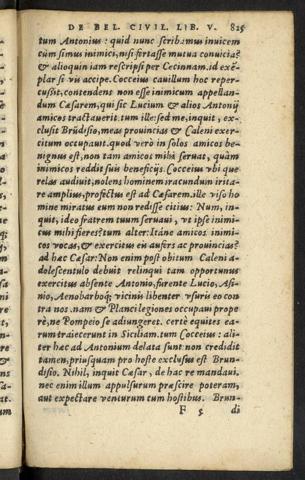 DE BEL. CIVIL. LIB. V. 825
tum Antonius: quid nunc scribemus inuicem
cùm simus inimici, nisi fortasse mutua conuicia?
& alioquin iam rescripsi per Cecinnam. id exẽ-
plar si vis accipe. Cocceius cauillum hoc reper-
cussit, contendens non esse inimicum appellan-
dum Cæsarem, qui sic Lucium & alios Antonij
amicos tractauerit. tum ille: sed me, inquit, ex-
clusit Brũdisio, meas prouincias & Caleni exer-
citum occupauit. quod verò in solos amicos be-
nignus est, non tam amicos mihi seruat, quàm
inimicos reddit suis beneficijs. Cocceius vbi que-
relas audiuit, nolens hominem iracundum irita-
re amplius, profectus est ad Cæsarem. ille viso ho
mine miratus eum non redisse citius: Num, in-
quit, ideo fratrem tuum seruaui, vt ipse inimi-
cus mihi fieres? tum alter: Itáne amicos inimi-
cos vocas, & exercitus eis aufers ac prouincias?
ad hæc Cæsar: Non enim post obitum Caleni a-
dolescentulo debuit relinqui tam opportunus
exercitus absente Antonio, furente Lucio, Asi-
nio, Aenobarboq; vicinis libenter vsuris eo con
tra nos. nam & Plancilegiones occupaui prope
rè, ne Pompeio se adiungeret. certè equites ea-
rum traiecerunt in Siciliam. tum Cocceius: ali-
ter hæc ad Antonium delata sunt non credidit
tamen, priusquam pro hoste exclusus est Brun-
disio. Nihil, inquit Cæsar, de hac re mandaui.
nec enim illum appulsurum præscire poteram,
aut expectare venturum cum hostibus. Brun-
F 5 di